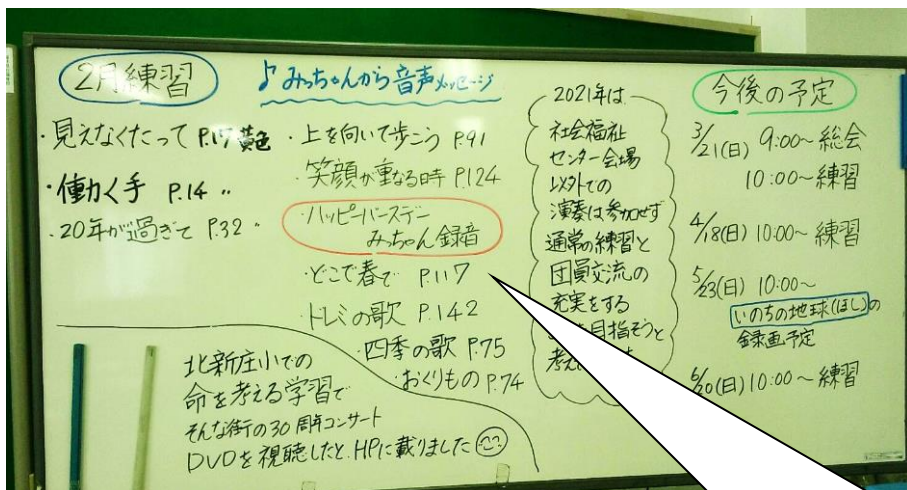 2月練習
・見えなくたって P.17 黄色
・働く手 P.14 〃
・20年が過ぎて P.32 〃
♪みっちゃんから音声メッセージ
・上を向いて歩こう P.91
・笑顔が重なる時 P.124
・ハッピーバースデー
みっちゃん録音
・どこで春で P.117
・トレミの歌 P.142
・四季の歌 P.75
・おくりもの P.74
北新庄小での
命を考える学習で
そんな街の30周年コンサート
DVDを視聴したと、HPに載りました
2021年は
社会福祉
センター会場
以外での
演奏は参加せず
通常の練習と
団員交流の
充実をする
目指そうと
考え
今後の予定
3/21(日) 9:00~総会
10:00~練習
4/18(日) 10:00~練習
5/23(日) 10:00~
いのちの地球(ほし)の
録画予定
6/20(日) 10:00~練習